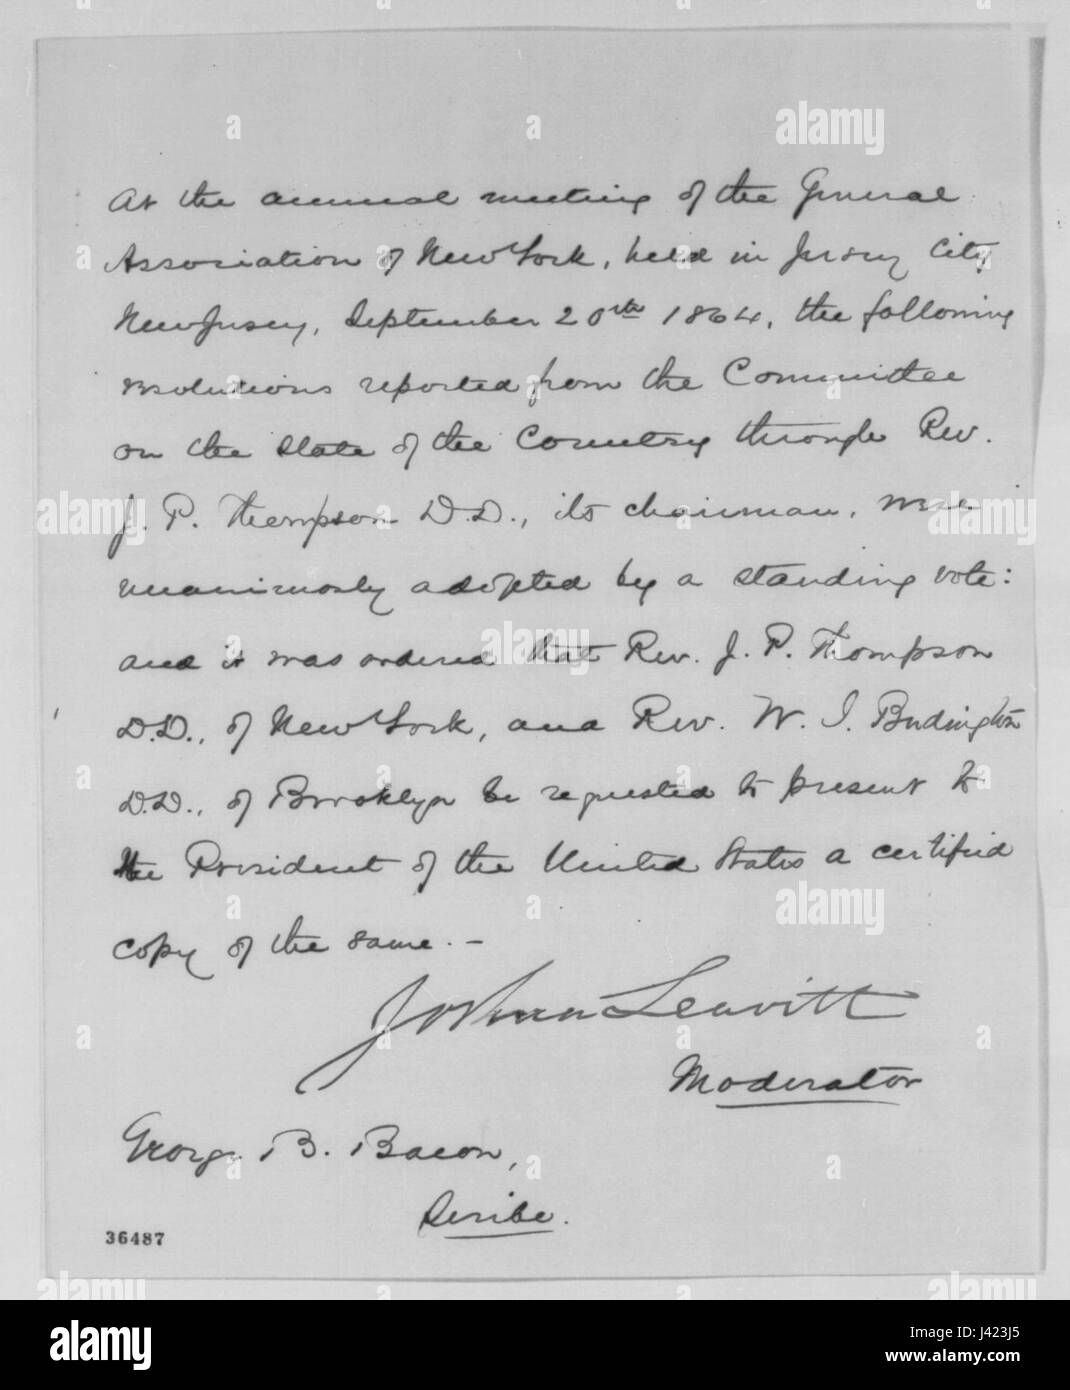 At the annual meeting of the General
Association of New York, held in Jersey City
New Jersey, September 20th 1864, the following
resolutions reported from the Committee
on the State of the Country through Rev.
J. P. Thompson D.D., its chairman, were
unanimously adopted by a standing vote:
and it was ordered that Rev. J. P. Thompson
D.D., of New York, and Rev. W. I. Budington
D.D., of Brooklyn be requested to present to
the President of the United States a certified
copy of the same. –
Joshua Leavitt
Moderator
George B. Bacon,
Scribe.
36487
alamy
a
alamy stock photo
J423J5
www.alamy.com